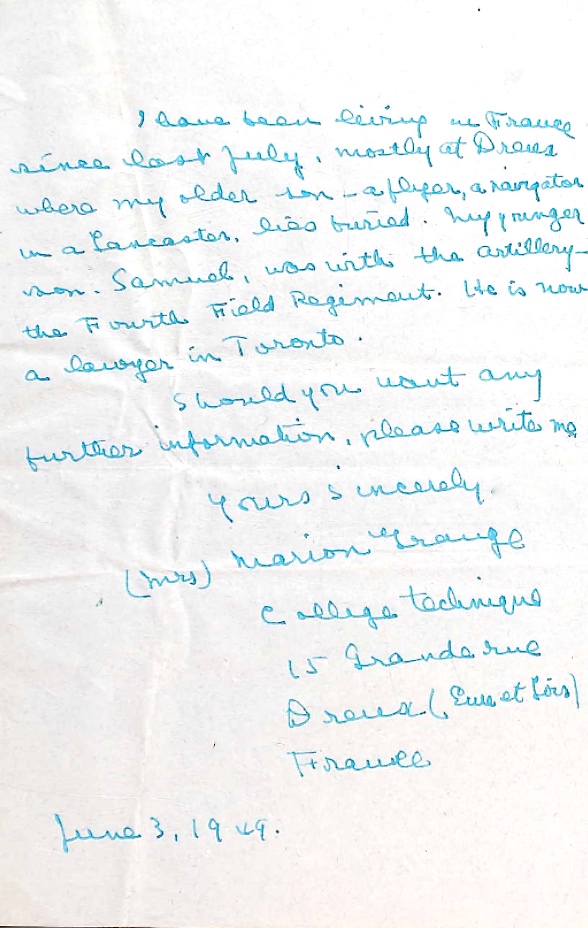 I have been living in France
since last July, mostly at Dreux
where my older son – a flyer, a navigator
in a Lancaster, lies buried. My younger
son. Samuel, was with the artillery –
the Fourth Field Regiment. He is now
a lawyer in Toronto.
Should you want any
further information, please write me
Yours Sincerely.
(Mrs) Marion Grange
College technique
15 Grande rue
Dreux (Eure et Loir)
France
June 3, 1949.